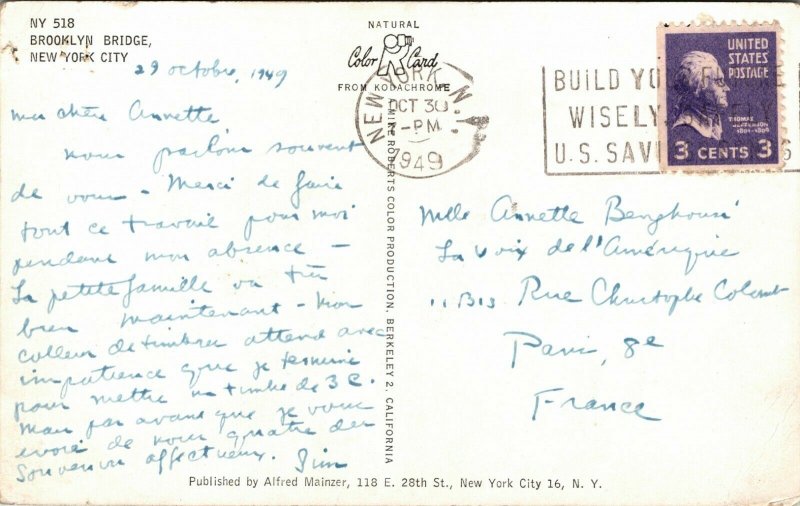 NY 518
BROOKLYN BRIDGE,
NEW YORK CITY
NATURAL
Color Card
FROM KODACHROME
29 octobre, 1949
ma chère Annette
nous parlons souvent
de vous - Merci de faire
tout ce travail pour moi
pendant mon absence -
La petite famille va très
bien maintenant - Mon
colleur de timbres attend avec
impatience que je termine
pour mettre un timbre de 3 c.
Mais pas avant que je vous
envoie de nous quatre des
Souvenirs affectueux. Jim
MIKE ROBERTS COLOR PRODUCTION, BERKELEY 2, CALIFORNIA
NEW YORK, N.Y.
OCT 30
-PM
1949
BUILD YO
WISELY
U.S. SAVI
UNITED
STATES
POSTAGE
THOMAS
JEFFERSON
1801-1809
3 CENTS 3
Mlle Annette
La Voix de l'Amérique
11 Bis Rue Christophe Colomb
Paris, 8e
France
Published by Alfred Mainzer, 118 E. 28th St., New York City 16, N. Y.